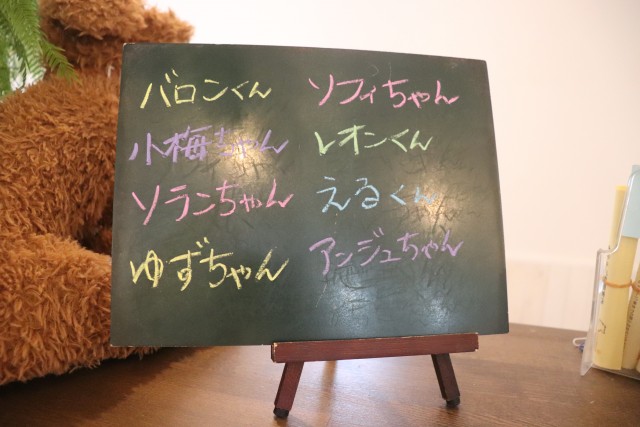 バロンくん
小梅ちゃん
ソランちゃん
ゆずちゃん
ソフィちゃん
レオンくん
えるくん
アンジュちゃん